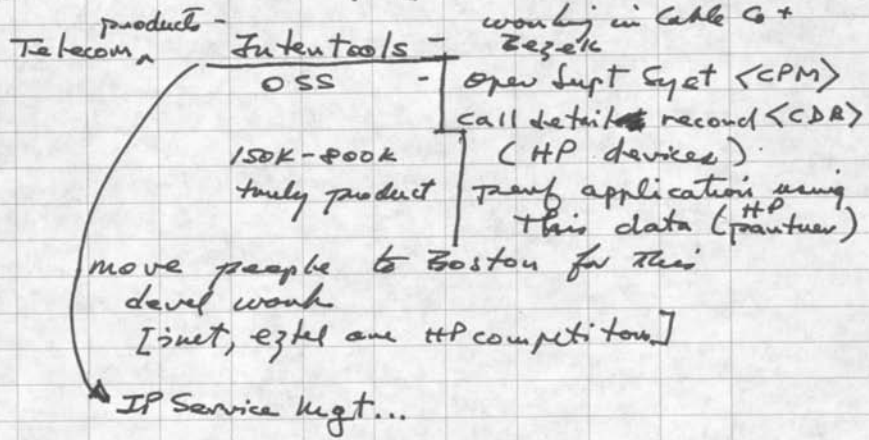 products -
Telecom ^ Intentools - working in Cable Co +
Bezek
OSS - Oper Supt Syst <CPM>
call detail record <CDR>
150K-800K (HP devices)
truly product perf application using
this data (HP partner)
move people to Boston for this
devel work
[inet, eztel are HP competitors]
IP Service Mgt...